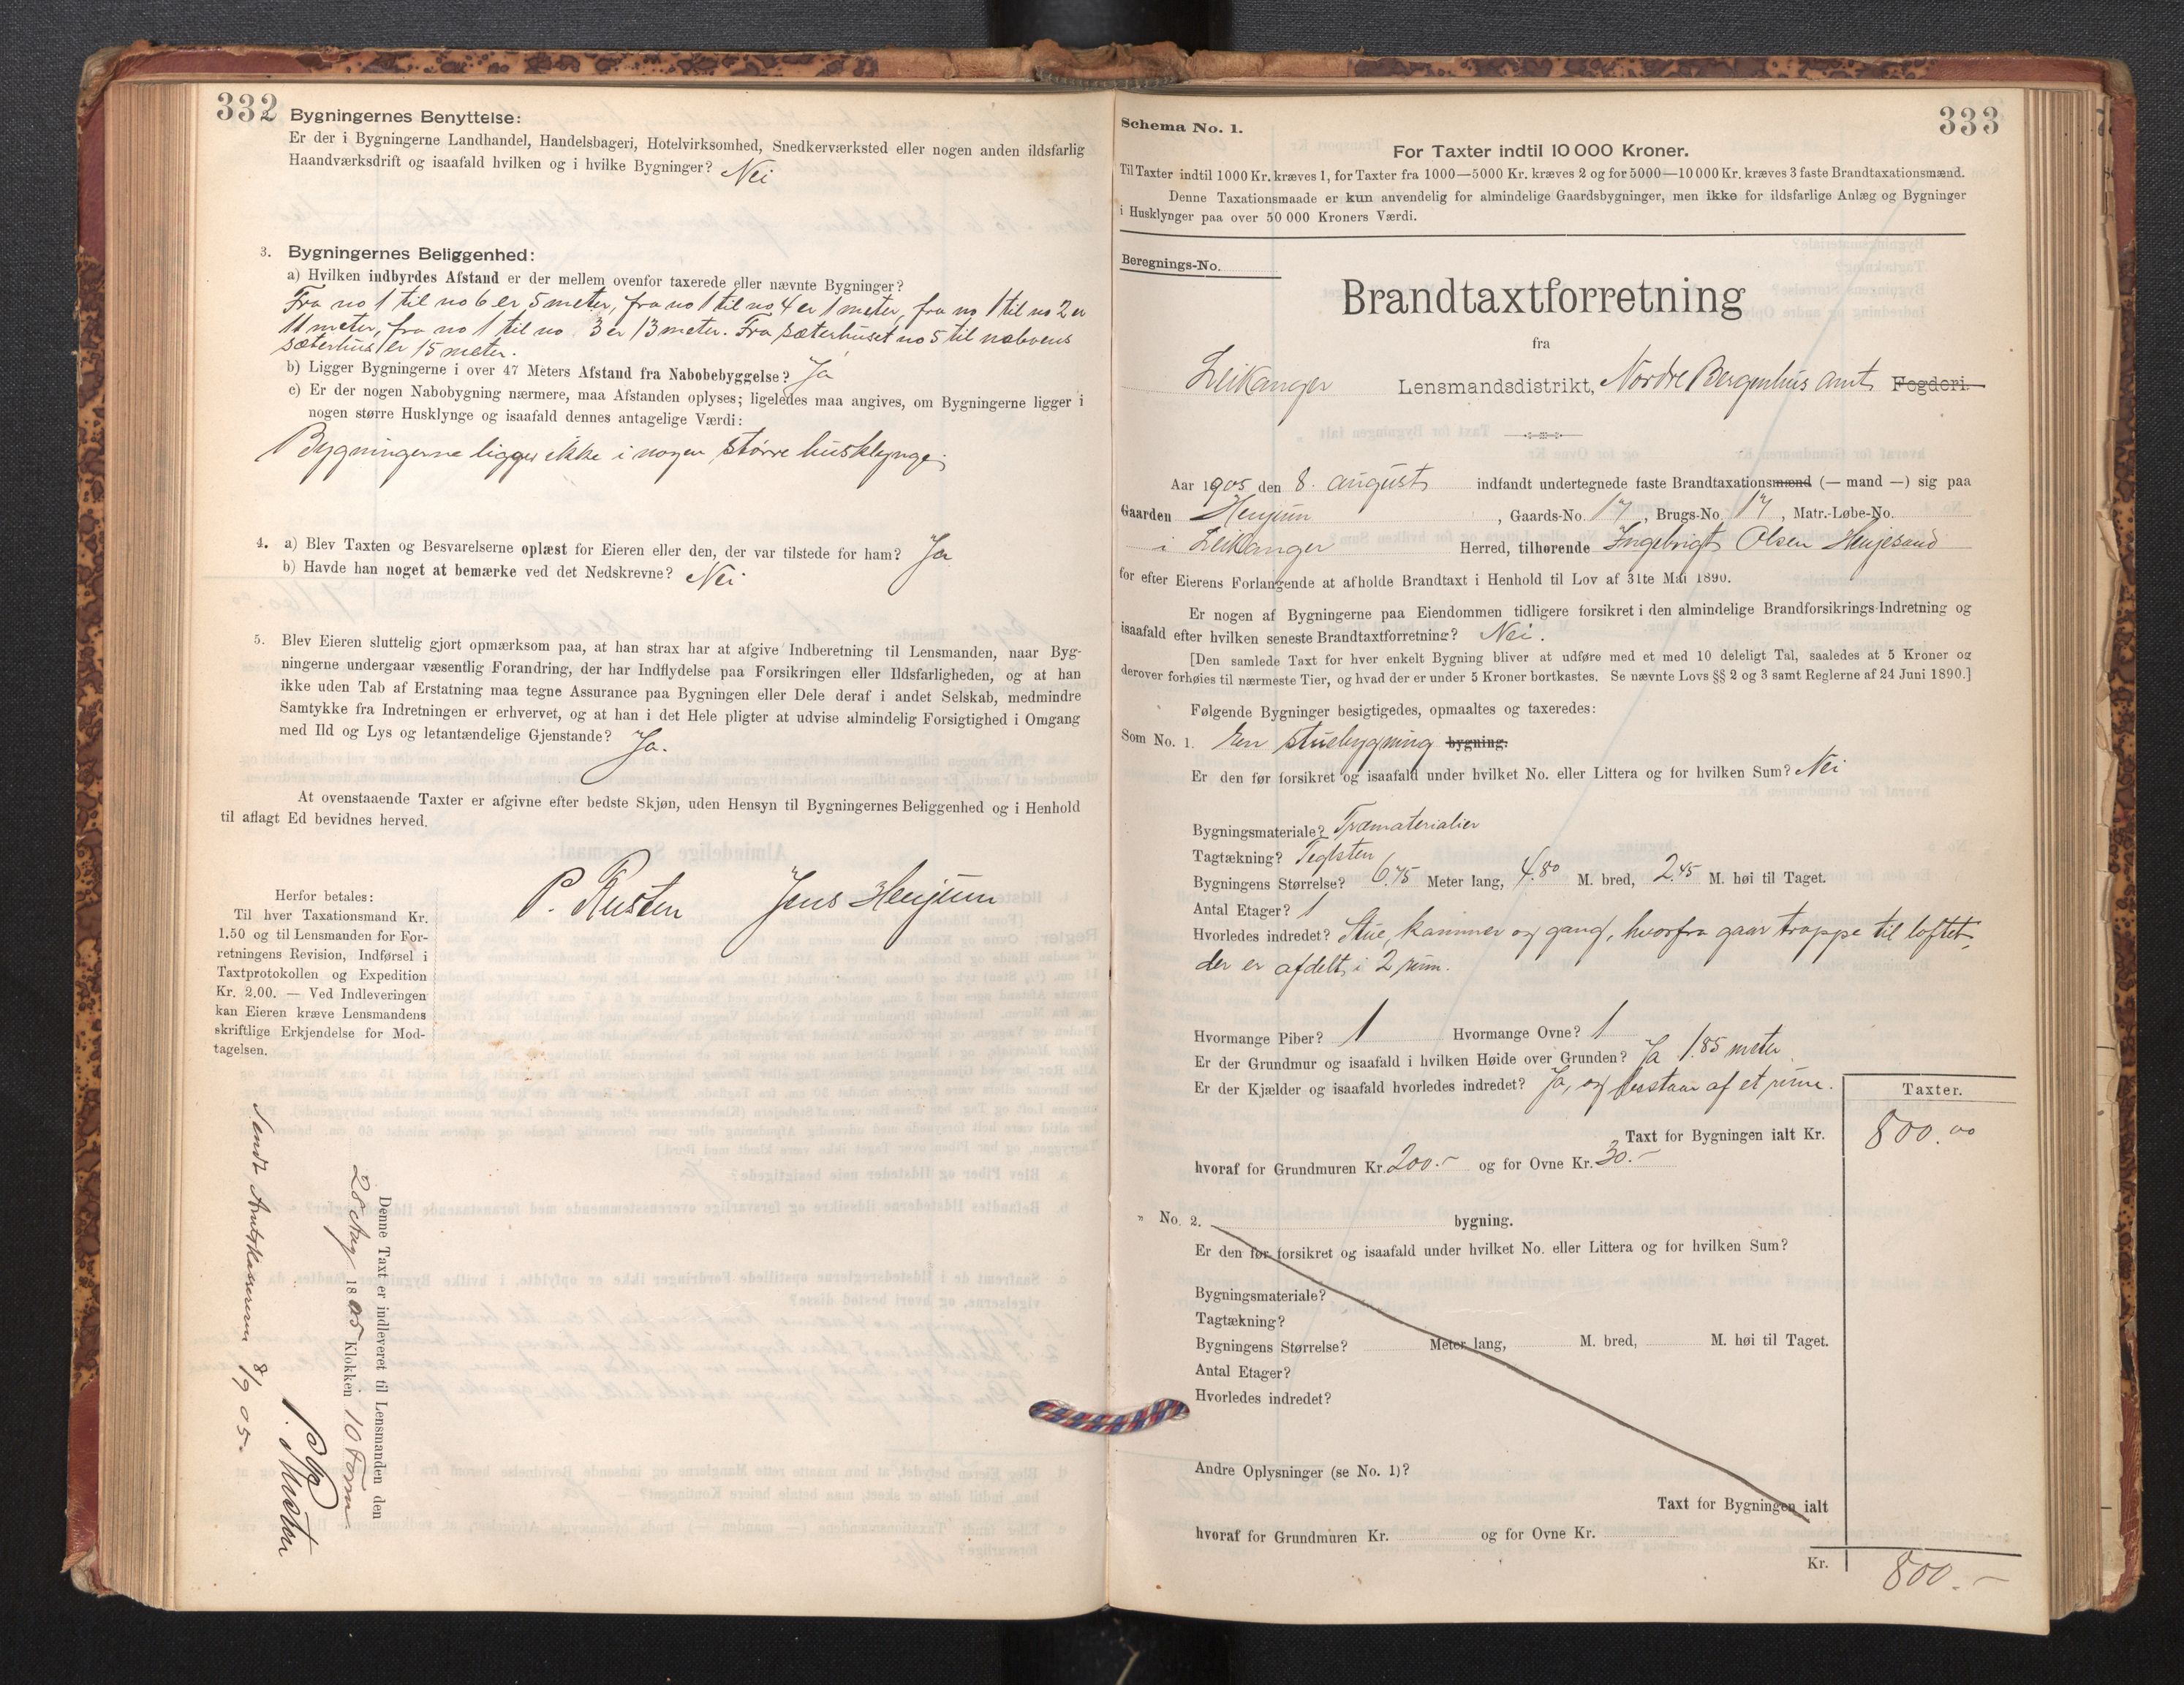 332
Bygningernes Benyttelse:
Er der i Bygningerne Landhandel, Handelsbageri, Hotelvirksomhed, Snedkerværksted eller nogen anden ildsfarlig
Haandværksdrift og isaafald hvilken og i hvilke Bygninger? Nei
3. Bygningernes Beliggenhed:
a) Hvilken indbyrdes Afstand er der mellem ovenfor taxerede eller nævnte Bygninger?
Fra no 1 til no 6 er 5 meter, fra no 1 til no 4 er 1 meter, fra no 1 til no 2 er
11 meter, fra no 1 til no 3 er 13 meter. Fra sæterhuset no 5 til naboens
sæterhus er 15 meter.
b) Ligger Bygningerne i over 47 Meters Afstand fra Nabobebyggelse? Ja
c) Er der nogen Nabobygning nærmere, maa Afstanden oplyses; ligeledes maa angives, om Bygningerne ligger i
nogen større Husklynge og isaafald dennes antagelige Værdi:
Bygningerne ligger ikke i nogen større husklynge.
4. a) Blev Taxten og Besvarelserne oplæst for Eieren eller den, der var tilstede for ham? Ja
b) Havde han noget at bemærke ved det Nedskrevne? Nei
5. Blev Eieren sluttelig gjort opmærksom paa, at han strax har at afgive Indberetning til Lensmanden, naar Byg-
ningerne undergaar væsentlig Forandring, der har Indflydelse paa Forsikringen eller Ildsfarligheden, og at han
ikke uden Tab af Erstatning maa tegne Assurance paa Bygningen eller Dele deraf i andet Selskab, medmindre
Samtykke fra Indretningen er erhvervet, og at han i det Hele pligter at udvise almindelig Forsigtighed i Omgang
med Ild og Lys og letantændelige Gjenstande? Ja.
At ovenstaaende Taxter er afgivne efter bedste Skjøn, uden Hensyn til Bygningernes Beliggenhed og i Henhold
til aflagt Ed bevidnes herved.
P. Rusten Jens Henjum
Herfor betales:
Til hver Taxationsmand Kr.
1.50 og til Lensmanden for For-
retningens Revision, Indførsel i
Taxtprotokollen og Expedition
Kr. 2.00. — Ved Indleveringen
kan Eieren kræve Lensmandens
skriftlige Erkjendelse for Mod-
tagelsen.
Denne Taxt er indleveret til Lensmanden den
28 Aug 1805 Klokken 10 Form
P. Rusten
Sendt Amtskassereren 8/9 05.
333
Schema No. 1.
For Taxter indtil 10 000 Kroner.
Til Taxter indtil 1000 Kr. kræves 1, for Taxter fra 1000—5000 Kr. kræves 2 og for 5000—10 000 Kr. kræves 3 faste Brandtaxationsmænd.
Denne Taxationsmaade er kun anvendelig for almindelige Gaardsbygninger, men ikke for ildsfarlige Anlæg og Bygninger
i Husklynger paa over 50 000 Kroners Værdi.
Beregnings-No.
Brandtaxtforretning
fra
Leikanger Lensmandsdistrikt, Nordre Bergenhus amt Fogderi.
Aar 1905 den 8. august indfandt undertegnede faste Brandtaxationsmænd (— mand —) sig paa
Gaarden Henjum, Gaards-No. 17, Brugs-No 17, Matr.-Løbe-No.
i Leikanger Herred, tilhørende Ingebrigt Olsen Henjesand
for efter Eierens Forlangende at afholde Brandtaxt i Henhold til Lov af 31te Mai 1890.
Er nogen af Bygningerne paa Eiendommen tidligere forsikret i den almindelige Brandforsikrings-Indretning og
isaafald efter hvilken seneste Brandtaxtforretning? Nei.
[Den samlede Taxt for hver enkelt Bygning bliver at udføre med et med 10 deleligt Tal, saaledes at 5 Kroner og
derover forhøies til nærmeste Tier, og hvad der er under 5 Kroner bortkastes. Se nævnte Lovs §§ 2 og 3 samt Reglerne af 24 Juni 1890.]
Følgende Bygninger besigtigedes, opmaaltes og taxeredes:
Som No. 1. En stuebygning bygning.
Er den før forsikret og isaafald under hvilket No. eller Littera og for hvilken Sum? Nei
Bygningsmateriale? Træmaterialier
Tagtækning? Teglsten
Bygningens Størrelse? 6.75 Meter lang, 4.80 M. bred, 2.45 M. høi til Taget.
Antal Etager? 1
Hvorledes indredet? Stue, kammer og gang, hvorfra gaar trappe til loftet,
der er afdelt i 2 rum.
Hvormange Piber? 1 Hvormange Ovne? 1
Er der Grundmur og isaafald i hvilken Høide over Grunden? Ja 1.85 meter
Er der Kjælder og isaafald hvorledes indredet? Ja, og bestaar af et rum.
Taxter.
Taxt for Bygningen ialt Kr. 800.00
hvoraf for Grundmuren Kr. 200.- og for Ovne Kr. 30.-
„ No. 2. bygning.
Er den før forsikret og isaafald under hvilket No. eller Littera og for hvilken Sum?
Bygningsmateriale?
Tagtækning?
Bygningens Størrelse? Meter lang, M. bred, M. høi til Taget.
Antal Etager?
Hvorledes indredet?
Andre Oplysninger (se No. 1)?
Taxt for Bygningen ialt
hvoraf for Grundmuren Kr. og for Ovne Kr.
Kr. 800.-